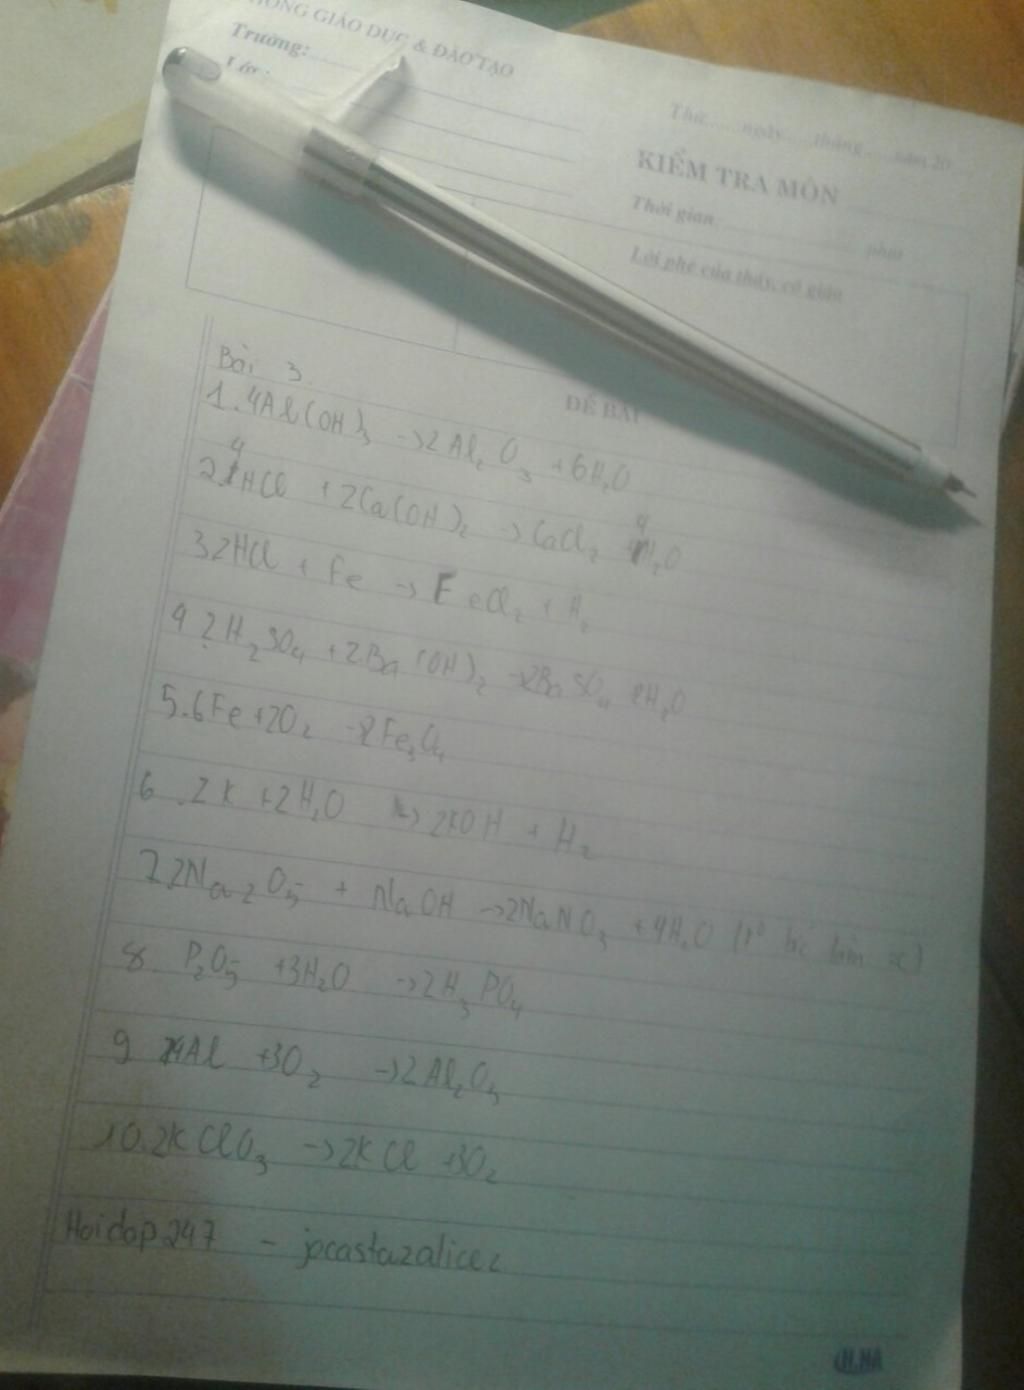 PHÒNG GIÁO DỤC & ĐÀO TẠO
Trường:
Lớp:
Thứ.......ngày......tháng......năm 20
KIỂM TRA MÔN
Thời gian: phút
Lời phê của thầy, cô giáo
ĐỀ BÀI
Bài 3
1. 4Al(OH)3 -> 2Al2O3 + 6H2O
2. 4HCl + 2Ca(OH)2 -> CaCl2 4H2O
3 2HCl + Fe -> FeCl2 + H2
4 2H2SO4 + 2Ba(OH)2 -> 2BaSO4 2H2O
5. 6Fe + 2O2 - 2Fe3O4
6. 2K + 2H2O -> 2KOH + H2
7 2Na2O5 + NaOH -> 2NaNO3 + 4H2O
8. P2O5 + 3H2O -> 2H3PO4
9 4Al + 3O2 -> 2Al2O3
10. 2KClO3 -> 2KCl + 3O2
Hoidap247 - jocastazalicez